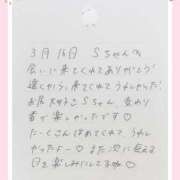 3月16日 Sちゃんへ
会いに来てくれてありがとう!
遠くから来てくれてうれしかった!
お尻大好きSちゃん、変わり
者で楽しかったです♡
たーくさんほめてくれてうれし
かったよー♡また次に会える
日を楽しみにしてるね♡